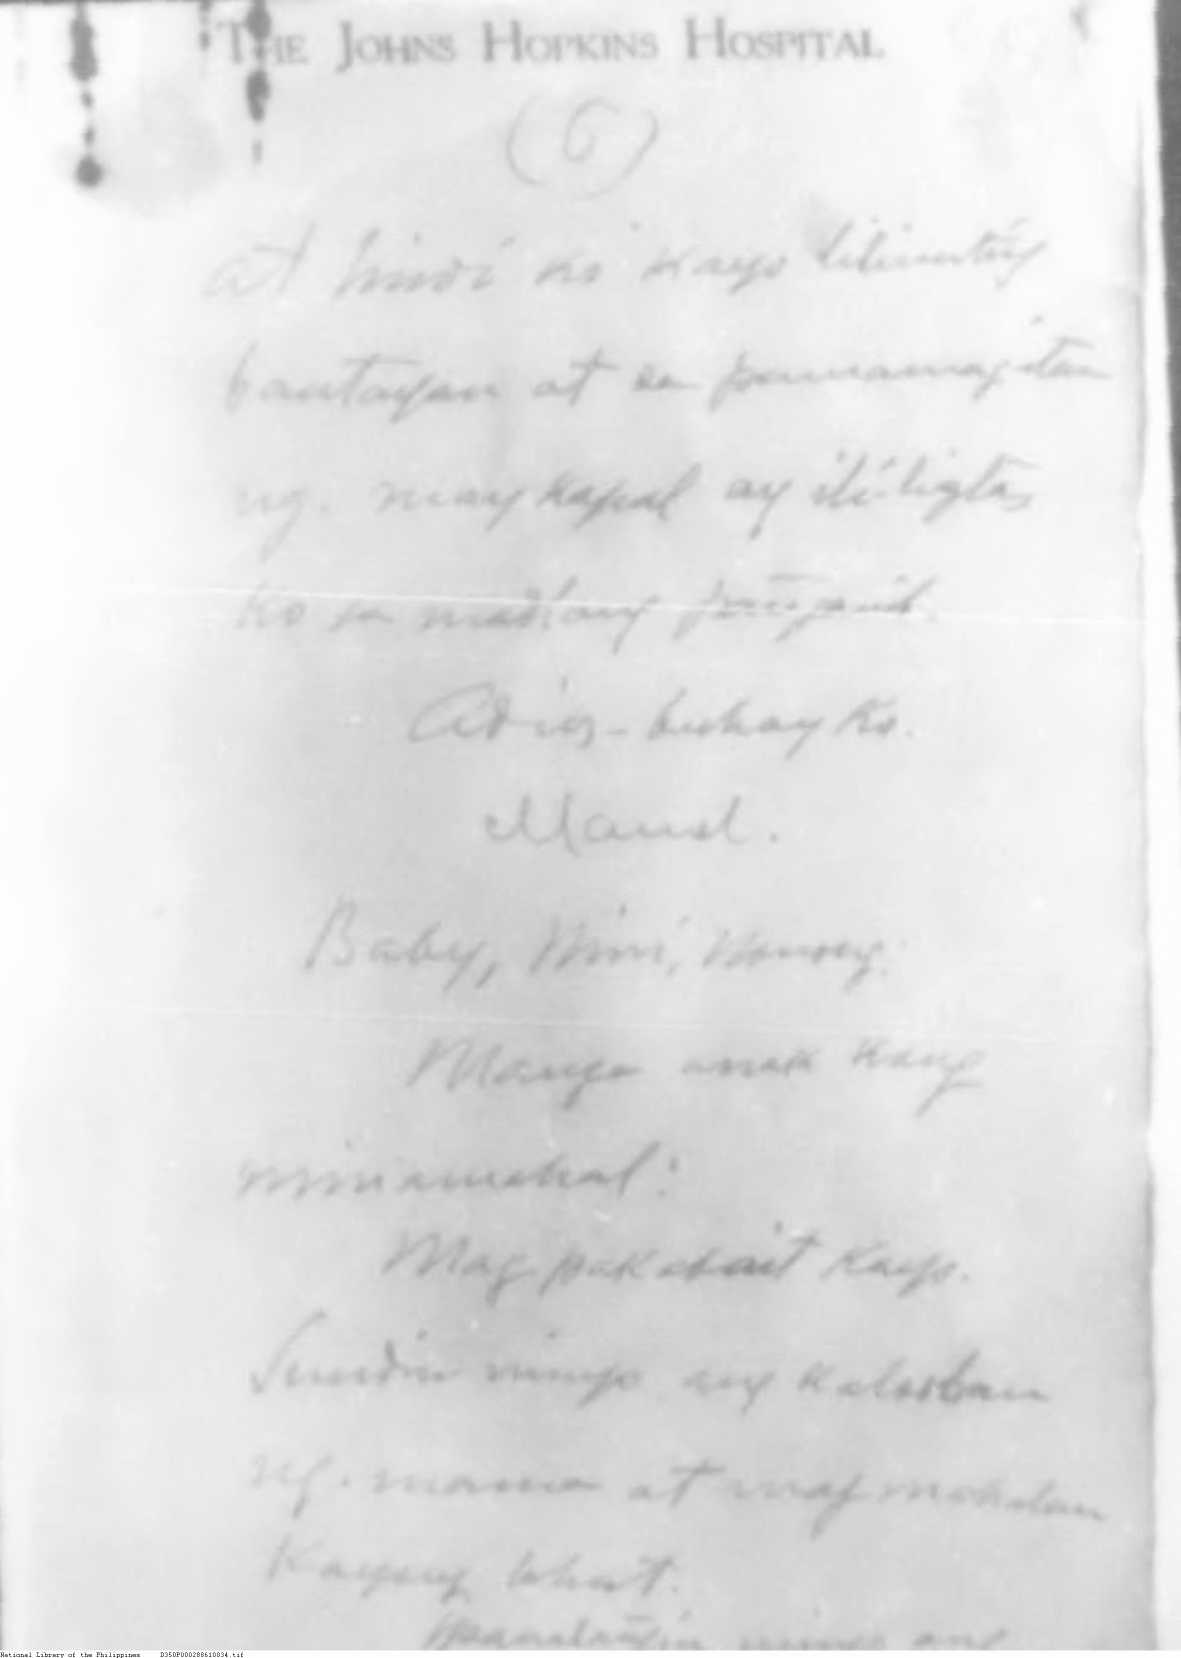 THE JOHNS HOPKINS HOSPITAL
(6)
at hindi ko kayo
bantayan at sa pamamagitan
ng. maykapal ay ililigtas
ko sa madlang pañganib.
Adios - buhay ko.
Manuel.
Baby, Nini, Nonong:
Mañga anak kong
minamahal:
Mag pakabait kayo.
Sundin ninyo ang kalooban
ng. mama at mag mahalan
kayong lahat.
ninyo ang
National Library of the Philippines D350P000288610034.tif